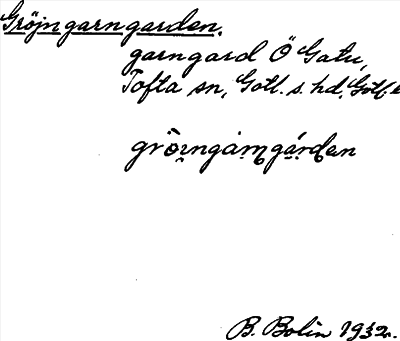 Gröjngarngarden.
garngard Ö Gatu,
Tofta sn, Gotl. s. hd, Gotl.
B. Bolin 1932.